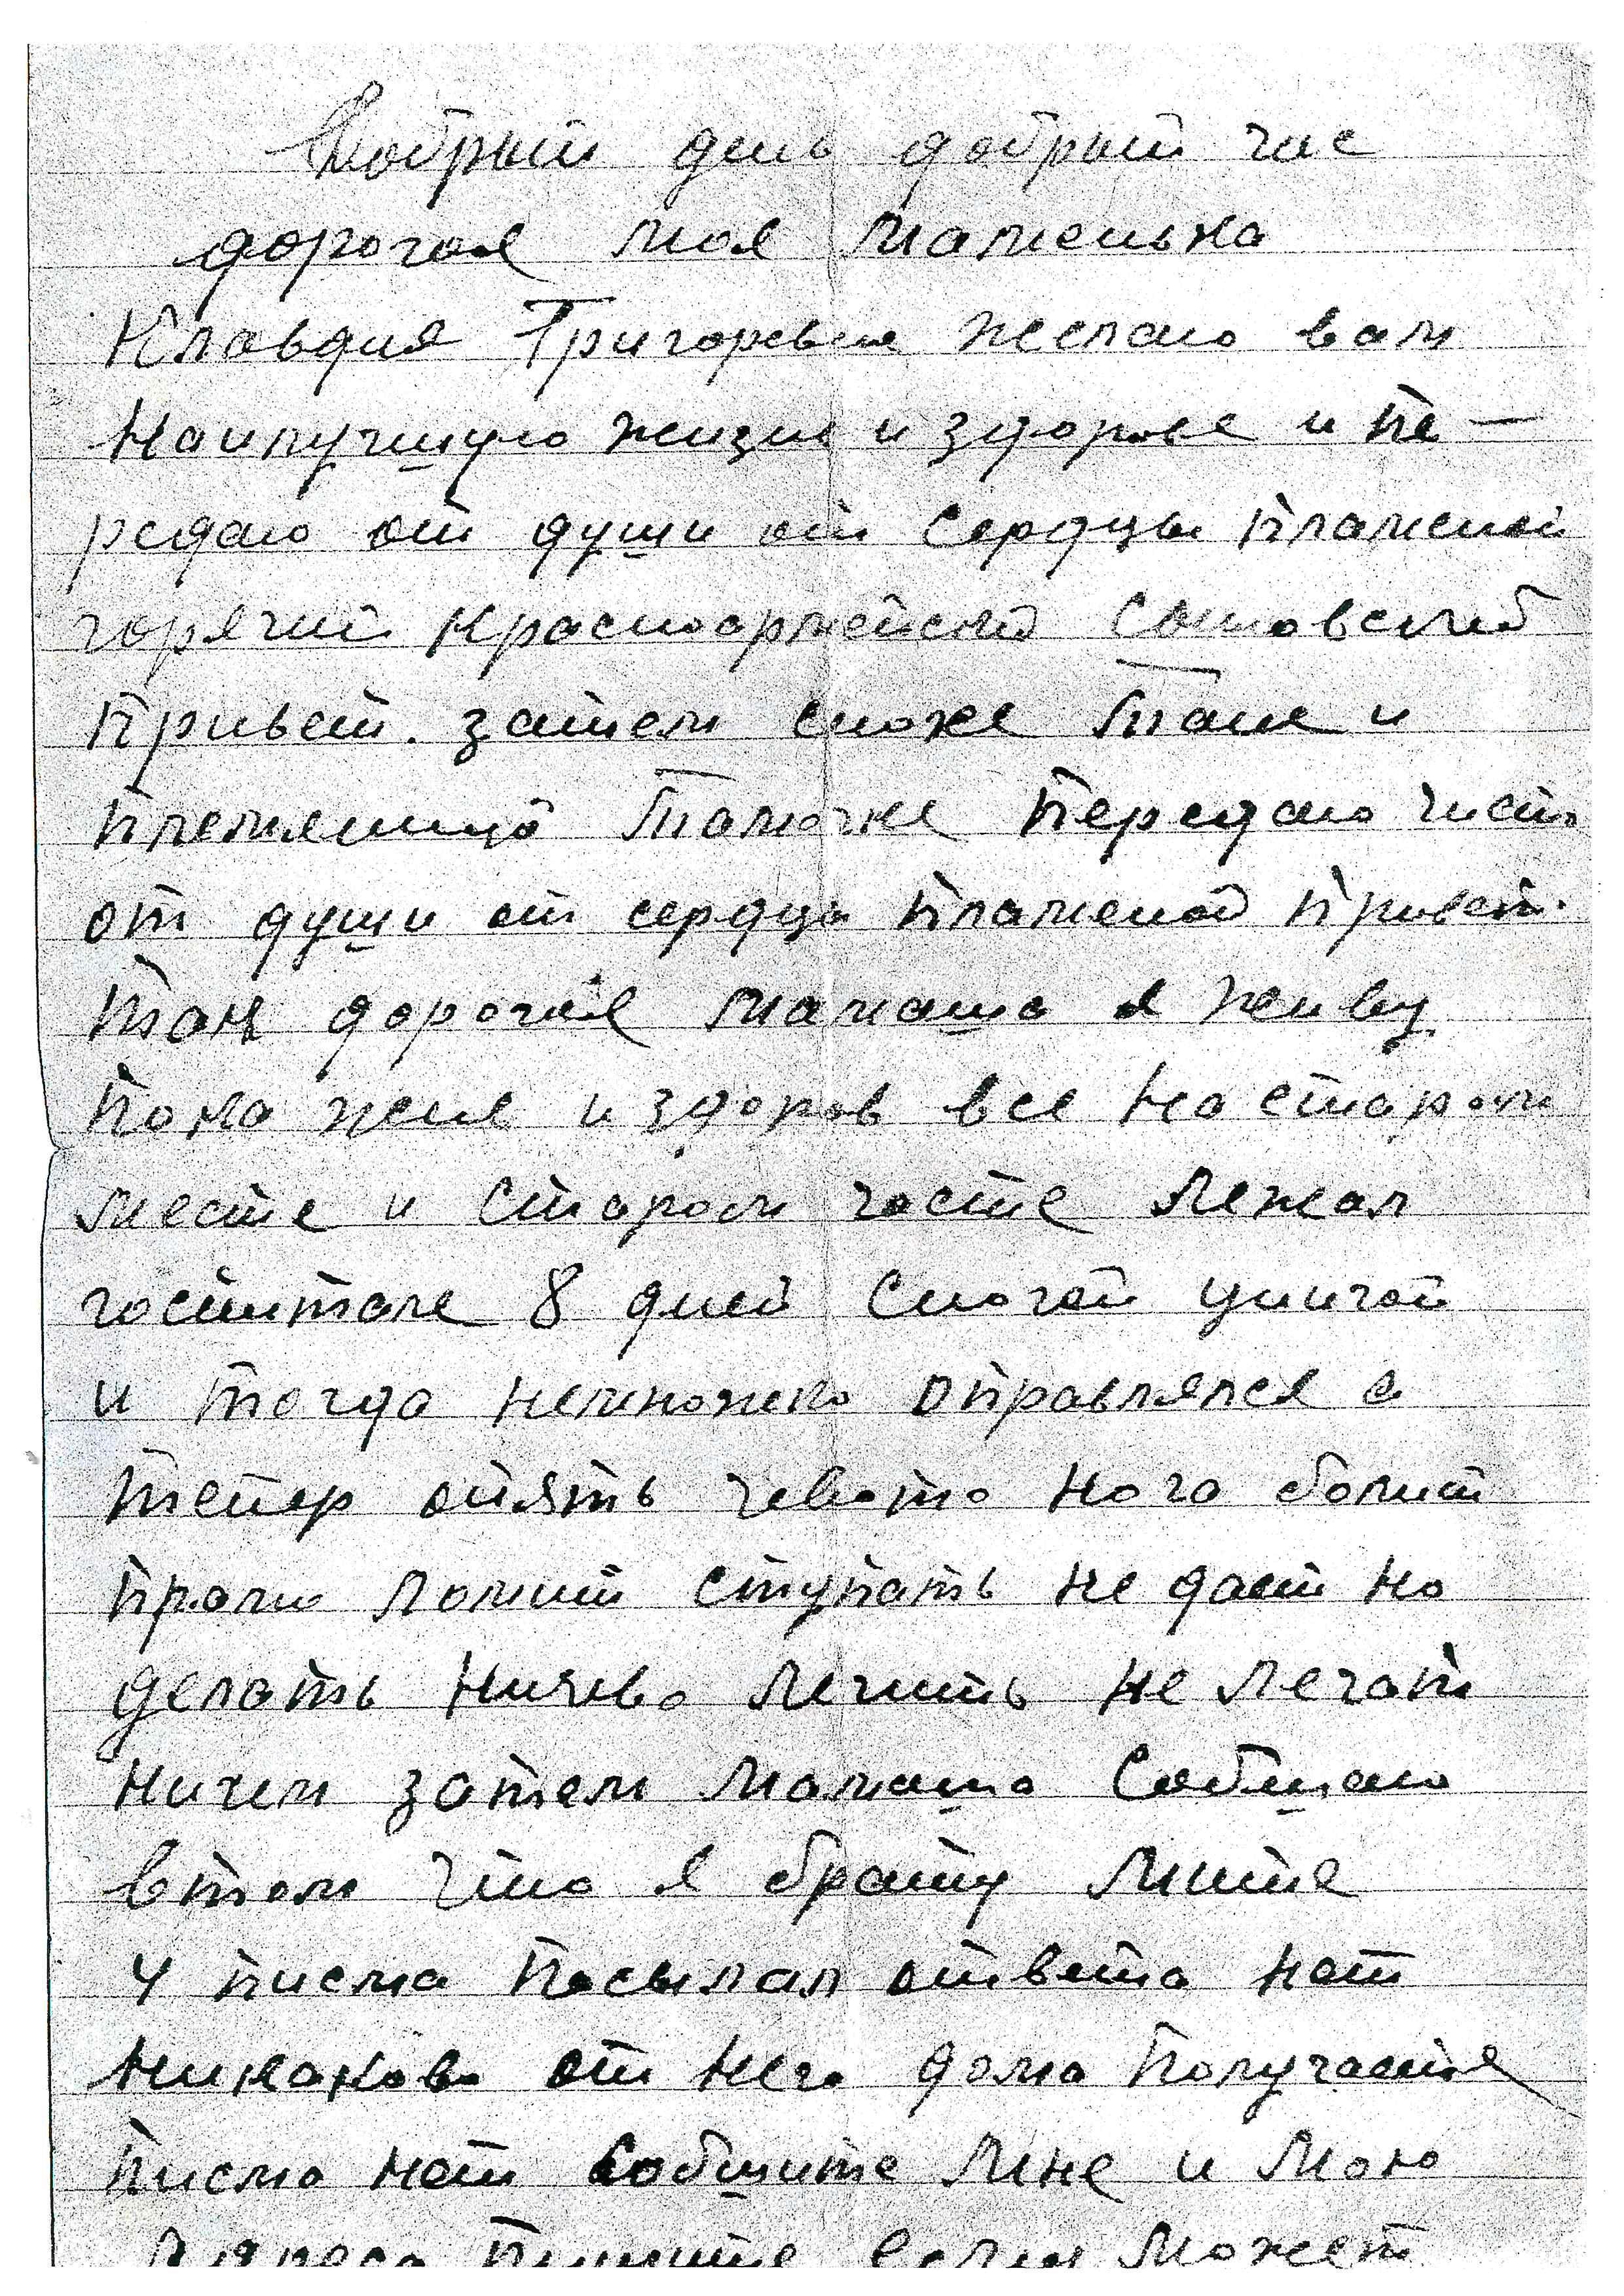 Добрый день добрый час
дорогая моя маменька
Клавдия Григоревна желаю вам
Наилучшую жизнь и здоровье и пе-
редаю от души от сердца пламеной
горячий красноармейский сыновский
привет. затем снохе Тане и
племяннице Тамочке передаю чисто
от души от сердца пламеной привет.
Так дорогая мамаша я живу
пока жив и здоров все на старом
месте и старом часте лежал
госпитале 8 дней с ногой
и тогда немножко оправлялся а
тепер опять чевото нога болит
прямо ломит ступать не дает но
делать ничево лечить не лечат
ничем затем мамаша сообщаю
втом что я брату Мите
4 писма посылал ответа нет
никаково от него дома получаете
писма нет сообщите мне и мою
пишите если может